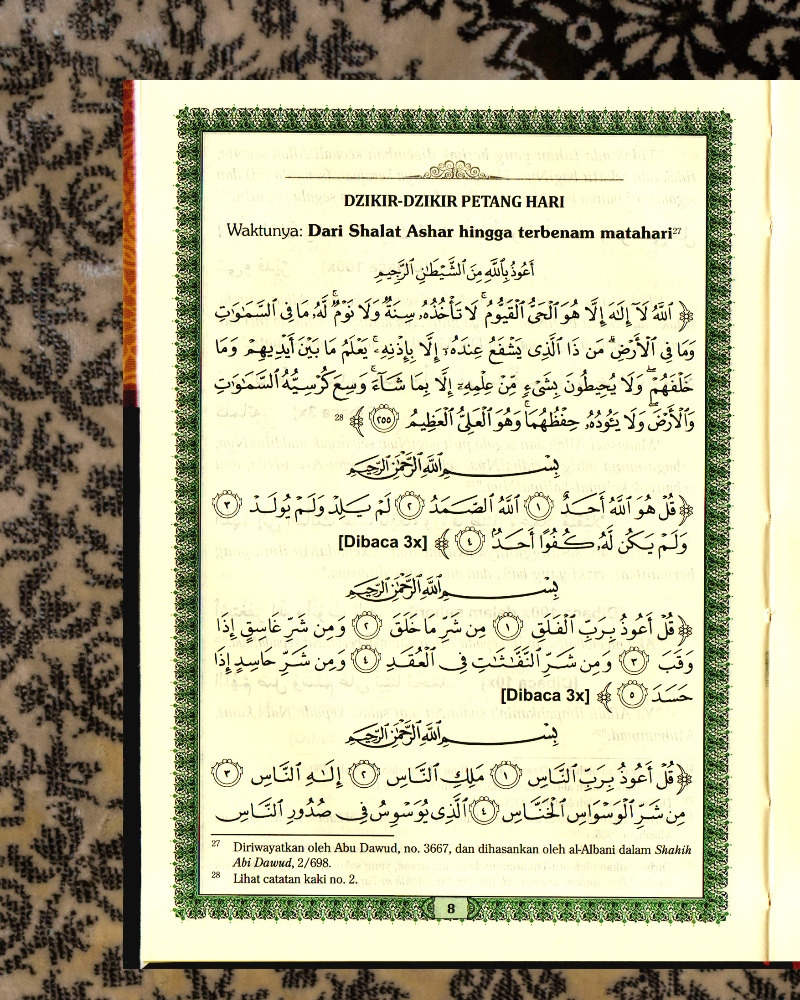 DZIKIR-DZIKIR PETANG HARI
Waktunya: Dari Shalat Ashar hingga terbenam matahari27
أَعُوذُ بِٱللَّهِ مِنَ ٱلشَّيْطَٰنِ ٱلرَّجِيمِ
﴿ ٱللَّهُ لَآ إِلَٰهَ إِلَّا هُوَ ٱلْحَىُّ ٱلْقَيُّومُ ۚ لَا تَأْخُذُهُۥ سِنَةٌ وَلَا نَوْمٌ ۚ لَّهُۥ مَا فِى ٱلسَّمَٰوَٰتِ
وَمَا فِى ٱلْأَرْضِ ۗ مَن ذَا ٱلَّذِى يَشْفَعُ عِندَهُۥٓ إِلَّا بِإِذْنِهِۦ ۚ يَعْلَمُ مَا بَيْنَ أَيْدِيهِمْ وَمَا
خَلْفَهُمْ ۖ وَلَا يُحِيطُونَ بِشَىْءٍ مِّنْ عِلْمِهِۦٓ إِلَّا بِمَا شَآءَ ۚ وَسِعَ كُرْسِيُّهُ ٱلسَّمَٰوَٰتِ
وَٱلْأَرْضَ ۖ وَلَا يَـُٔودُهُۥ حِفْظُهُمَا ۚ وَهُوَ ٱلْعَلِىُّ ٱلْعَظِيمُ ٢٥٥ ﴾ 28
بِسْمِ ٱللَّهِ ٱلرَّحْمَٰنِ ٱلرَّحِيمِ
﴿ قُلْ هُوَ ٱللَّهُ أَحَدٌ ١ ٱللَّهُ ٱلصَّمَدُ ٢ لَمْ يَلِدْ وَلَمْ يُولَدْ ٣
وَلَمْ يَكُن لَّهُۥ كُفُوًا أَحَدٌۢ ٤ ﴾ [Dibaca 3x]
بِسْمِ ٱللَّهِ ٱلرَّحْمَٰنِ ٱلرَّحِيمِ
﴿ قُلْ أَعُوذُ بِرَبِّ ٱلْفَلَقِ ١ مِن شَرِّ مَا خَلَقَ ٢ وَمِن شَرِّ غَاسِقٍ إِذَا
وَقَبَ ٣ وَمِن شَرِّ ٱلنَّفَّٰثَٰتِ فِى ٱلْعُقَدِ ٤ وَمِن شَرِّ حَاسِدٍ إِذَا
حَسَدَ ٥ ﴾ [Dibaca 3x]
بِسْمِ ٱللَّهِ ٱلرَّحْمَٰنِ ٱلرَّحِيمِ
﴿ قُلْ أَعُوذُ بِرَبِّ ٱلنَّاسِ ١ مَلِكِ ٱلنَّاسِ ٢ إِلَٰهِ ٱلنَّاسِ ٣
مِن شَرِّ ٱلْوَسْوَاسِ ٱلْخَنَّاسِ ٤ ٱلَّذِى يُوَسْوِسُ فِى صُدُورِ ٱلنَّاسِ
27 Diriwayatkan oleh Abu Dawud, no. 3667, dan dihasankan oleh al-Albani dalam Shahih
Abi Dawud, 2/698.
28 Lihat catatan kaki no. 2.
8